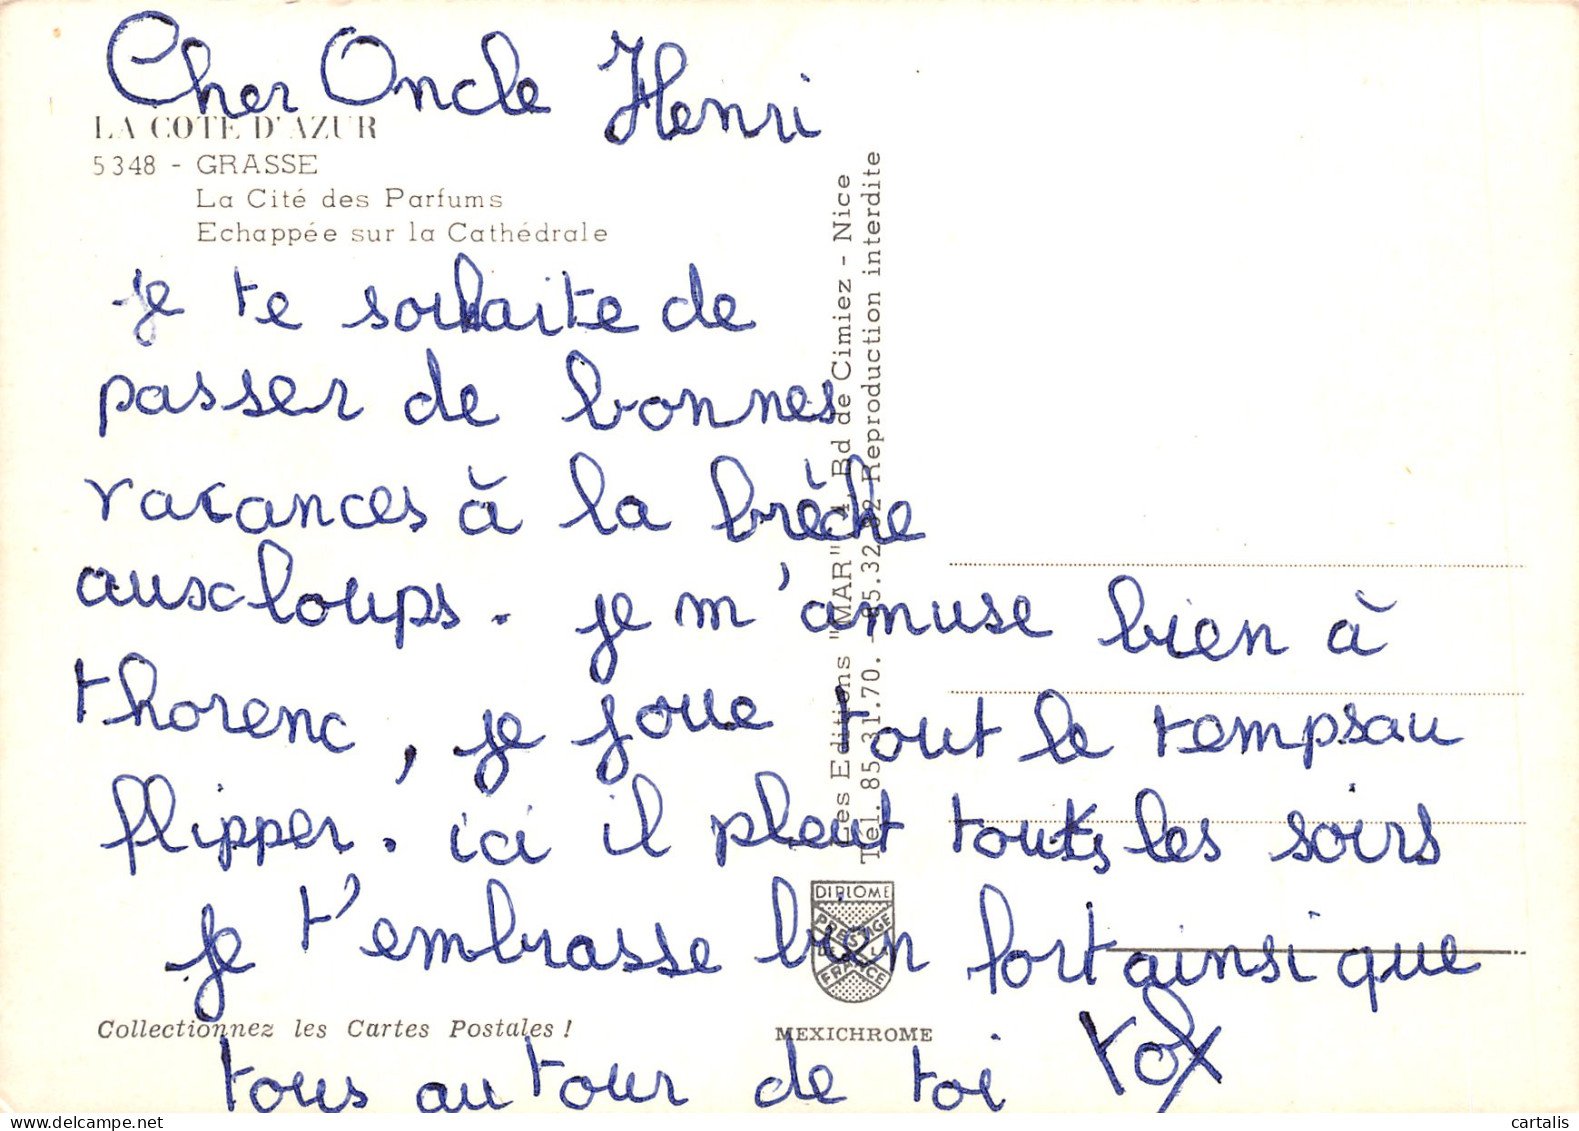 Cher Oncle Henri
LA COTE D'AZUR
5348 - GRASSE
La Cité des Parfums
Echappée sur la Cathédrale
je te souhaite de
passer de bonnes
vacances à la brêche
aux loups. je m'amuse bien à
thorenc, je joue tout le temps au
flipper. ici il pleut touts les soirs
je t'embrasse bien fort ainsi que
tous autour de toi
Les Editions "MAR" Bd de Cimiez - Nice
Tél. 85.31.70. - 85.32.82 Reproduction interdite
DIPLOME
PRESTIGE
DE LA
FRANCE
Collectionnez les Cartes Postales !
MEXICHROME
cartalis